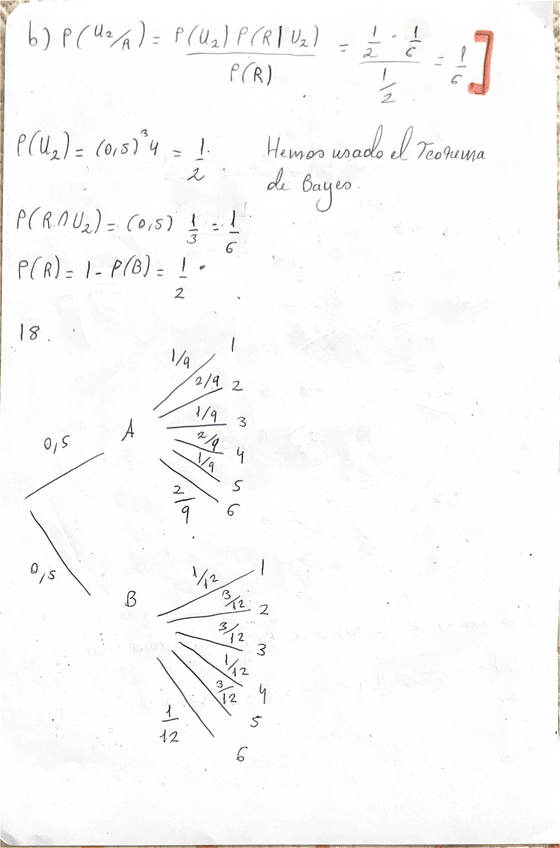 b) P(U2/R) = P(U2) P(R|U2) / P(R) = 1/2 · 1/6 / 1/2 = 1/6 ]
P(U2) = (0,5)³4 = 1/2. Hemos usado el Teorema
de Bayes.
P(R∩U2) = (0,5) 1/3 = 1/6
P(R) = 1 - P(B) = 1/2.
18.
1/9 1
2/9 2
0,5 A 1/9 3
2/9 4
1/9 5
2/9 6
0,5 B 1/12 1
3/12 2
3/12 3
1/12 4
3/12 5
1/12 6